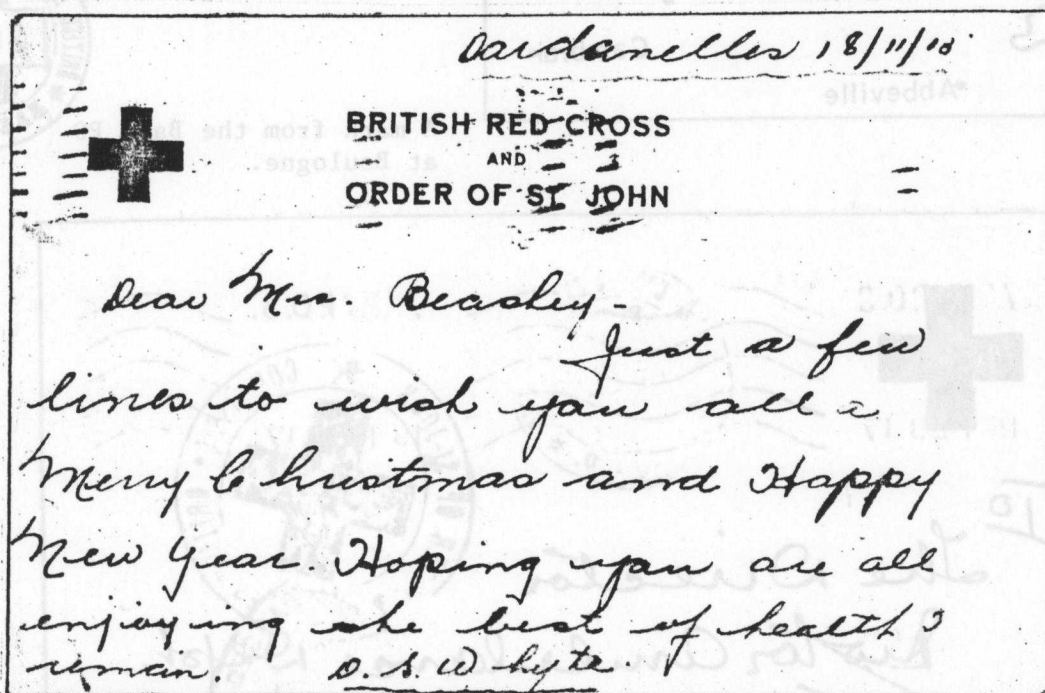 Dardanelles 18/11/18
BRITISH RED CROSS
AND
ORDER OF ST JOHN
Dear Mrs. Beasley-
Just a few
lines to wish you all a
Merry Christmas and Happy
New Year. Hoping you are all
enjoying the best of health I
remain. D. S. Whyte.
Abbeville
from the Ba
at Boulogne.
The Director